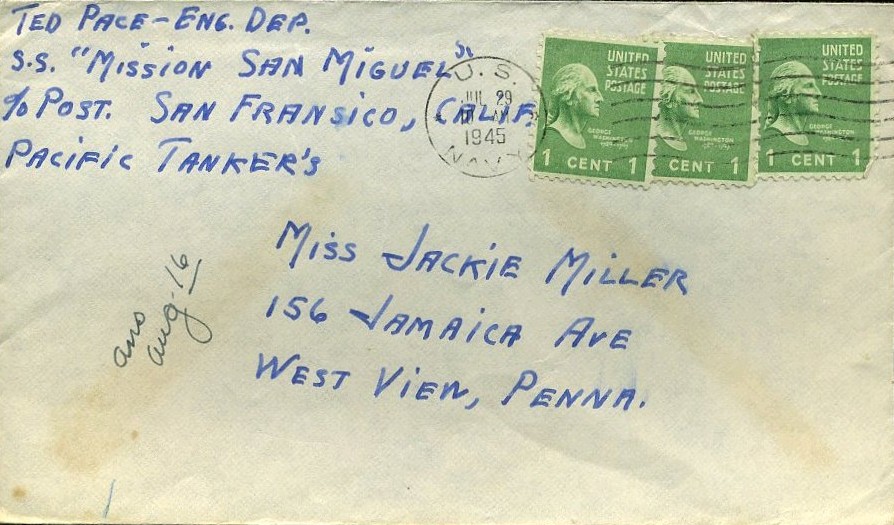 Ted Pace - Eng. Dep.
S.S. "Mission San Miguel"
c/o Post. San Fransico, Calif.
Pacific Tanker's
U.S.
JUL 29
1945
NAVY
UNITED
STATES
POSTAGE
GEORGE
WASHINGTON
1 CENT 1
UNITED
STATES
POSTAGE
GEORGE
WASHINGTON
CENT 1
UNITED
STATES
POSTAGE
GEORGE
WASHINGTON
1 CENT 1
Miss Jackie Miller
156 Jamaica Ave
West View, Penna.
ans
aug. 16